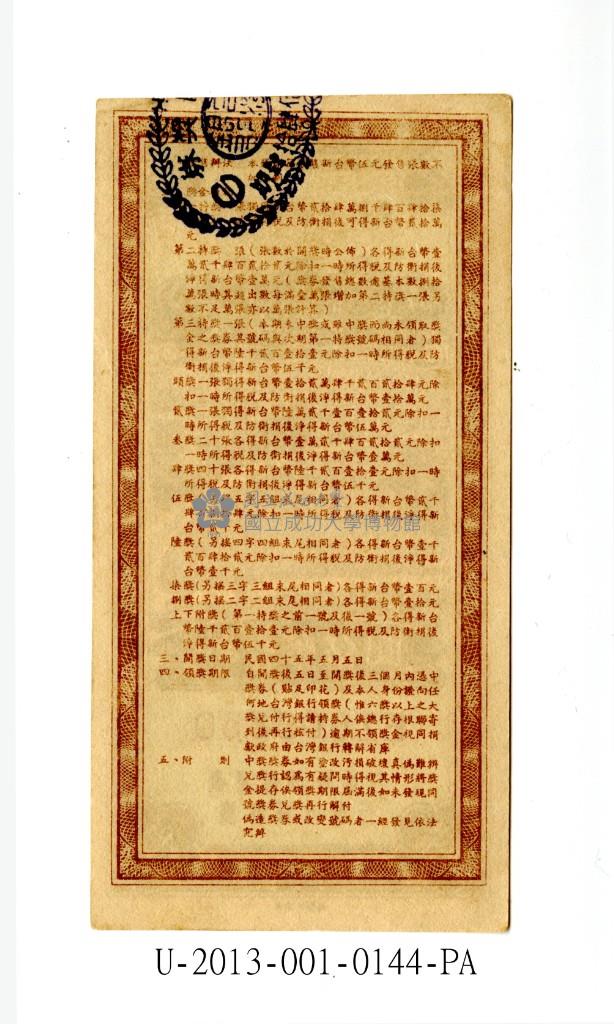 本 新台幣伍元發售張數不
獎金
獨 台幣貳拾肆萬捌千肆百肆拾柒
稅及防衛捐後可得新台幣貳拾萬
元
第二特獎 張(張數於開獎時公佈)各得新台幣壹
萬貳千肆百貳拾貳元除扣一時所得稅及防衛捐後
淨得新台幣壹萬元(獎券發售總數逾基本數捌拾
萬張時其超出數每滿壹萬張增加第二特獎一張另
數不足萬張亦以萬張計算)
第三特獎一張(本期未中獎或雖中獎而尚未領取獎
金之獎券其號碼與次期第一特獎號碼相同者)獨
得新台幣陸千貳百壹拾壹元除扣一時所得稅及防
衛捐後淨得新台幣伍千元
頭獎一張獨得新台幣壹拾貳萬肆千貳百貳拾肆元除
扣一時所得稅及防衛捐後淨得新台幣壹拾萬元
貳獎一張獨得新台幣陸萬貳千壹百壹拾貳元除扣一
時所得稅及防衛捐後淨得新台幣伍萬元
叁獎二十張各得新台幣壹萬貳千肆百貳拾貳元除扣
一時所得稅及防衛捐後淨得新台幣壹萬元
肆獎四十張各得新台幣陸千貳百壹拾壹元除扣一時
所得稅及防衛捐後淨得新台幣伍千元
伍獎(另搖五字五組末尾相同者)各得新台幣貳千
肆百 元除扣一時所得稅及防衛捐後淨得新
台幣貳千元
國立成功大學博物館
陸獎(另搖四字四組末尾相同者)各得新台幣壹千
貳百肆拾貳元除扣一時所得稅及防衛捐後淨得新
台幣壹千元
柒獎(另搖三字三組末尾相同者)各得新台幣壹百元
捌獎(另搖二字二組末尾相同者)各得新台幣壹拾元
上下附獎(第一特獎之前一號及後一號)各得新台
幣陸千貳百壹拾壹元除扣一時所得稅及防衛捐後
淨得新台幣伍千元
三、開獎日期 民國四十五年五月五日
四、領獎期限 自開獎後五日至開獎後三個月內憑中
獎券(貼足印花)及本人身份證向任
何地台灣銀行領獎(惟六獎以上之大
獎兌付行得請持券人俟總行存根聯寄
到後再行核付)逾期不領獎金視同捐
獻政府由台灣銀行轉解省庫
五、附 則 中獎獎券如有塗改污損破壞真偽難辨
兌獎行認為有疑問時得視其情形將獎
金提存俟領獎期限屆滿後如未發現同
號獎券兌獎再行解付
偽造獎券或改變號碼者一經發見依法
究辦
U-2013-001-0144-PA